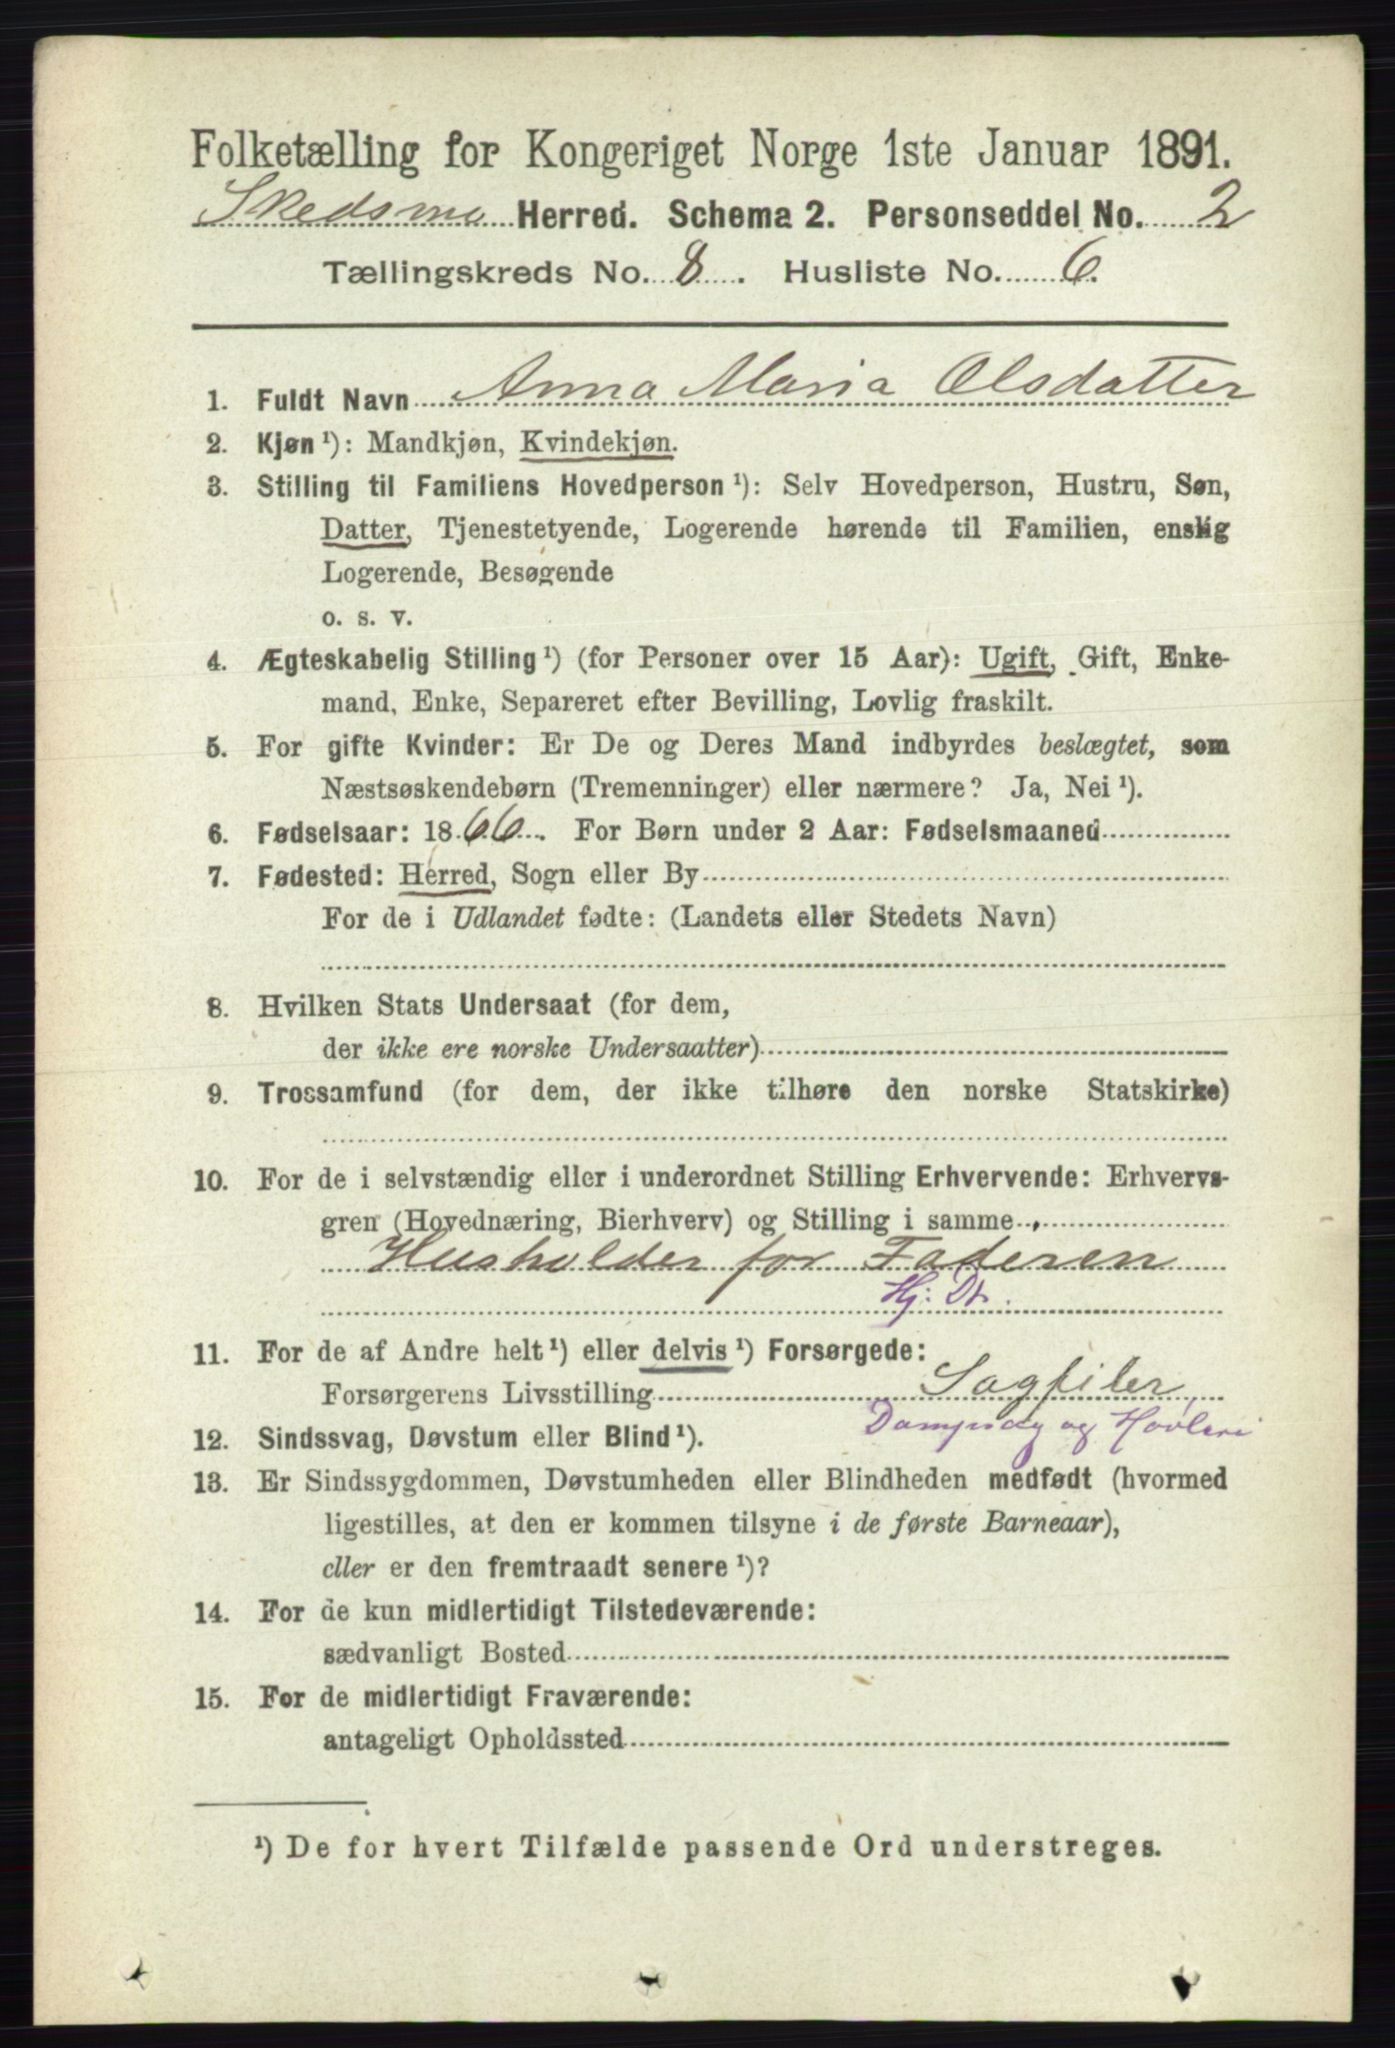 Folketælling for Kongeriget Norge 1ste Januar 1891.
Skedsmo Herred. Schema 2. Personseddel No. 2
Tællingskreds No. 8. Husliste No. 6.
1. Fuldt Navn Anna Maria Olsdatter
2. Kjøn ¹): Mandkjøn, Kvindekjøn.
3. Stilling til Familiens Hovedperson ¹): Selv Hovedperson, Hustru, Søn,
Datter, Tjenestetyende, Logerende hørende til Familien, enslig
Logerende, Besøgende
o. s. v.
4. Ægteskabelig Stilling ¹) (for Personer over 15 Aar): Ugift, Gift, Enke-
mand, Enke, Separeret efter Bevilling, Lovlig fraskilt.
5. For gifte Kvinder: Er De og Deres Mand indbyrdes beslægtet, som
Næstsøskendebørn (Tremenninger) eller nærmere? Ja, Nei ¹).
6. Fødselsaar: 1866. For Børn under 2 Aar: Fødselsmaaned
7. Fødested: Herred, Sogn eller By
For de i Udlandet fødte: (Landets eller Stedets Navn)
8. Hvilken Stats Undersaat (for dem,
der ikke ere norske Undersaatter)
9. Trossamfund (for dem, der ikke tilhøre den norske Statskirke)
10. For de i selvstændig eller i underordnet Stilling Erhvervende: Erhvervs-
gren (Hovednæring, Bierhverv) og Stilling i samme
Husholder for Faderen
Hj: Dt.
11. For de af Andre helt ¹) eller delvis ¹) Forsørgede:
Forsørgerens Livsstilling Sagfiler,
Dampsag og Høvleri
12. Sindssvag, Døvstum eller Blind ¹).
13. Er Sindssygdommen, Døvstumheden eller Blindheden medfødt (hvormed
ligestilles, at den er kommen tilsyne i de første Barneaar),
eller er den fremtraadt senere ¹)?
14. For de kun midlertidigt Tilstedeværende:
sædvanligt Bosted
15. For de midlertidigt Fraværende:
antageligt Opholdssted
¹) De for hvert Tilfælde passende Ord understreges.